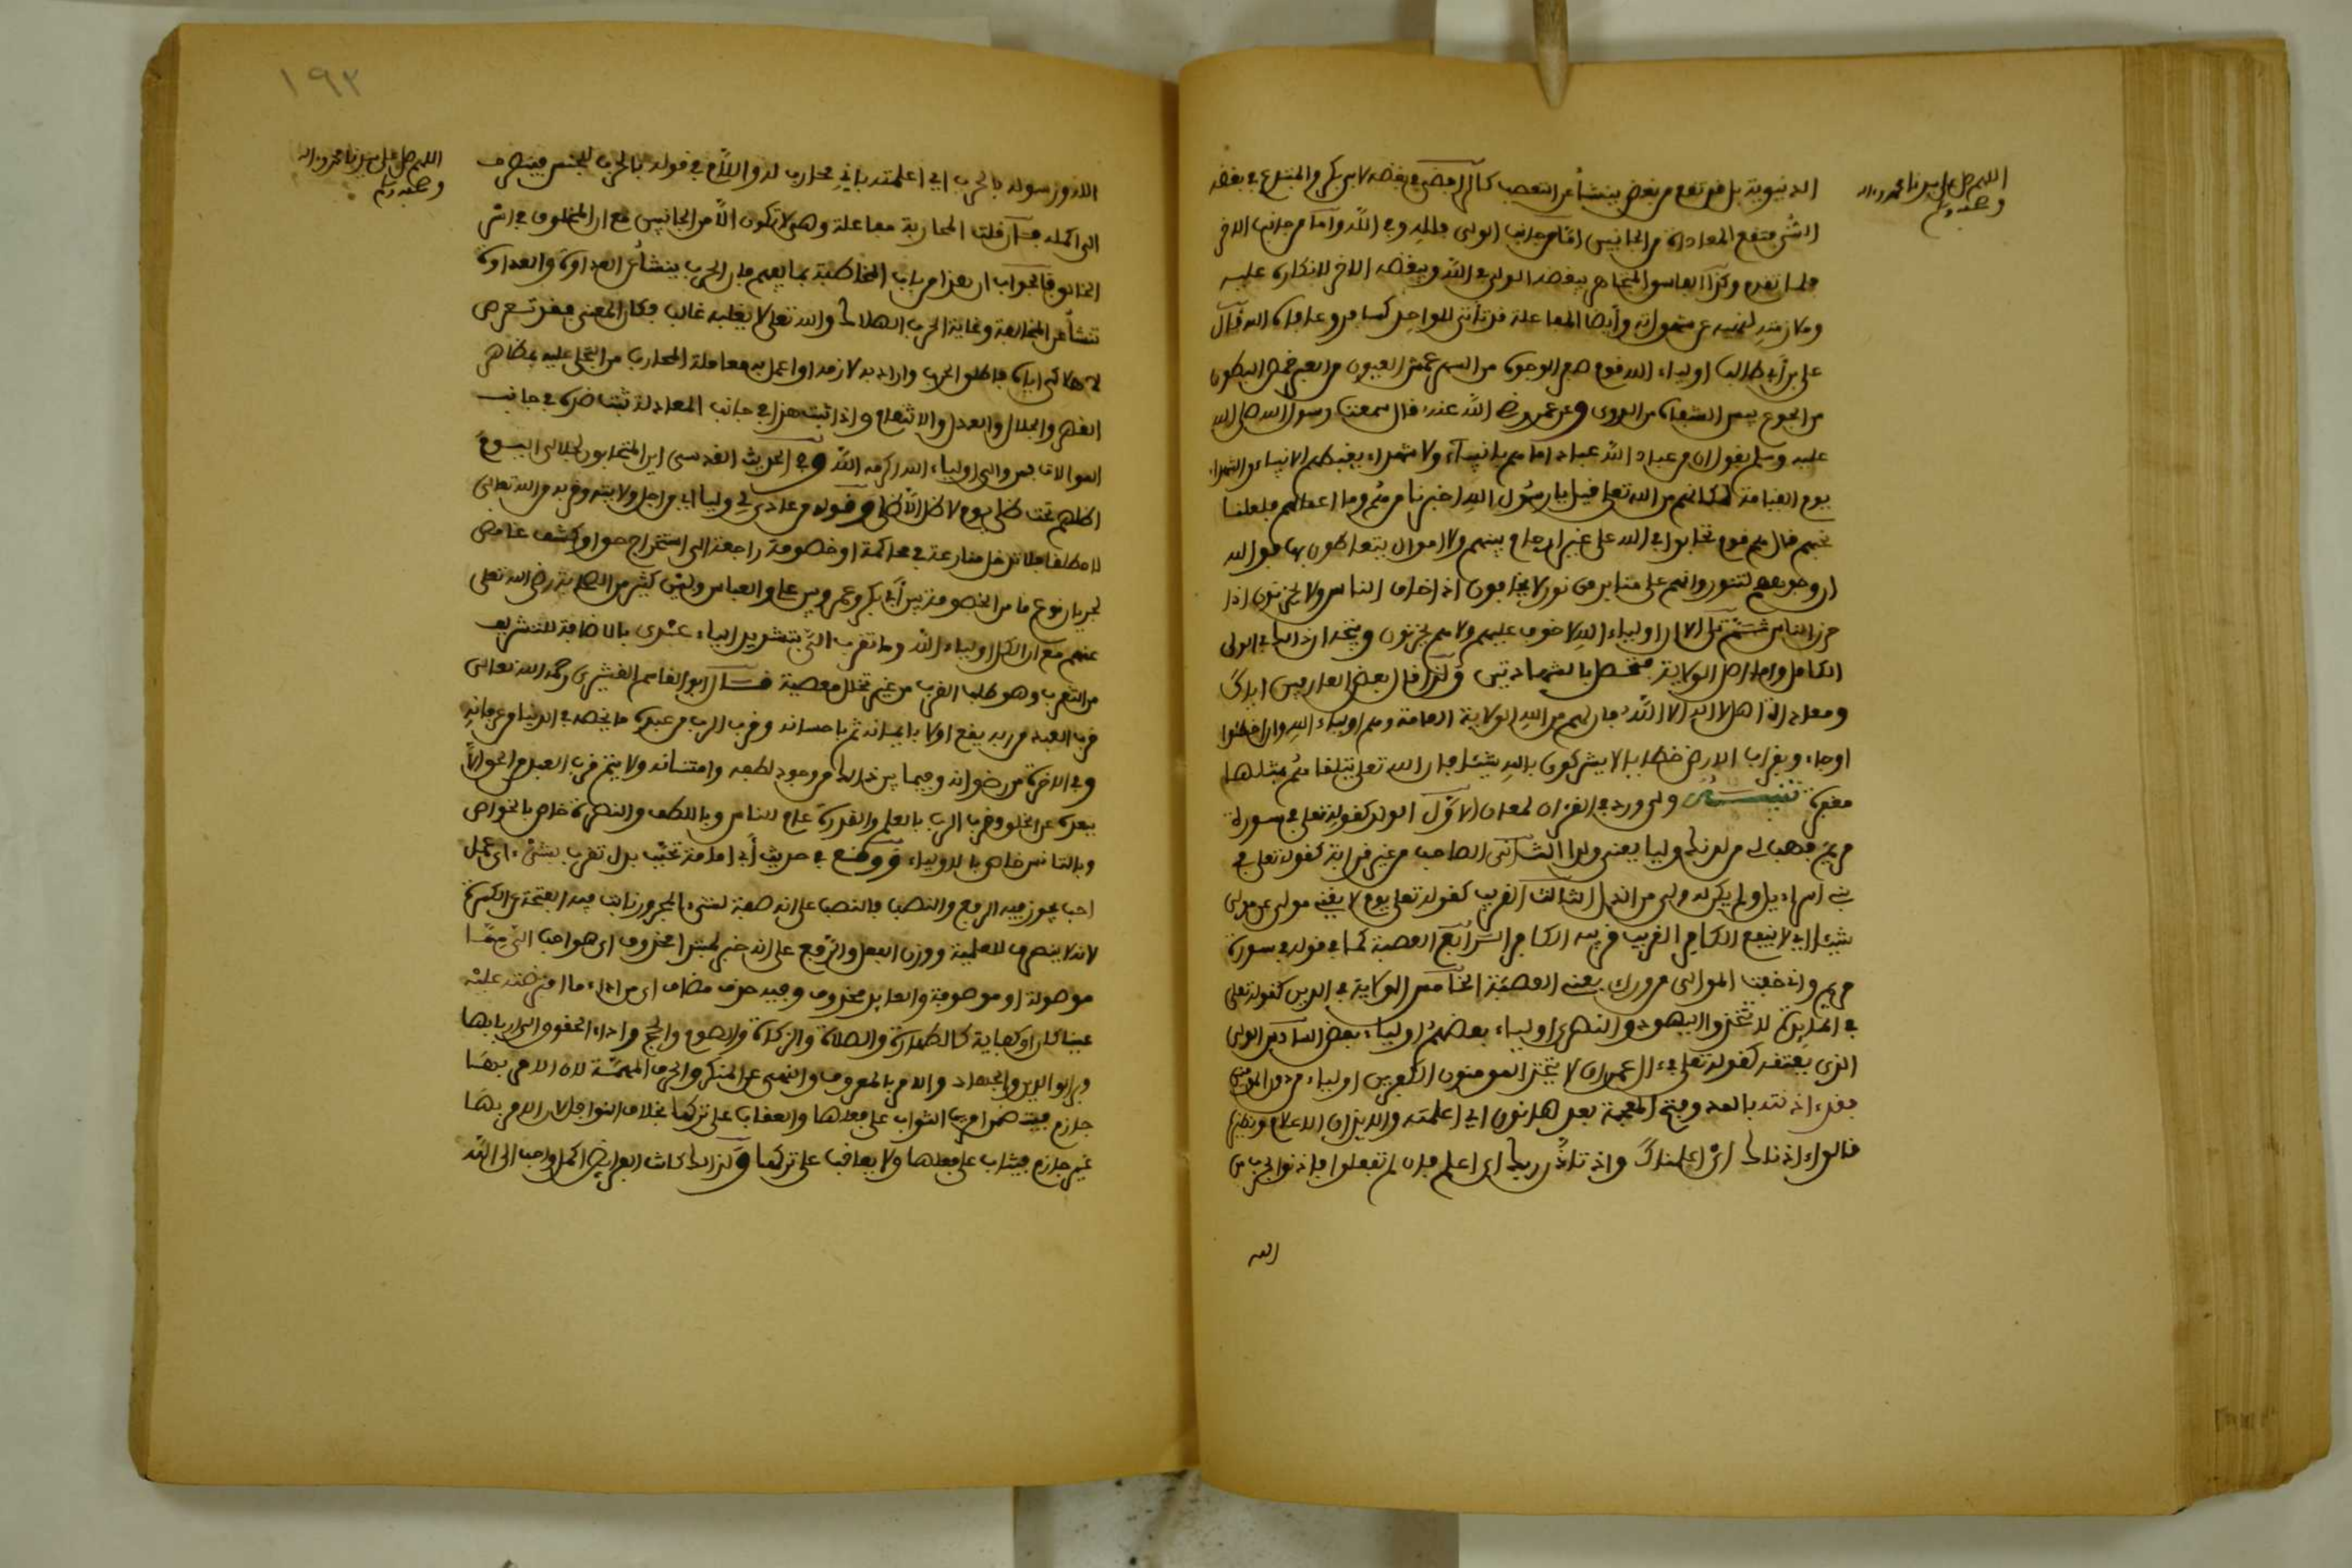 اللهم صل على سيدنا محمد وءاله
وصحبه وسلم
الدنيوية بل قد تقع من بغض ينشأ عن التعصب كالرافضي في بغضه لابي بكر والمبتدع في بغضه
السني فتقع المعاداة من الجانبين اما من جانب الولي فلله وفي الله واما من جانب الاخر
فلما تقدم وكذا الفاسق المتجاهر يبغضه الولي في الله ويبغضه الاخر لانكاره عليه
وملازمته لنهيه عن شهواته وأيضا المفاعلة قد تأتي للواحد كسافر وعافاه الله قال
علي بن أبي طالب اولياء الله قوم صفر الوجوه من السهر عمش العيون من العبر خمص البطون
من الجوع يبس الشفاه من الذوى وعن عمر رضي الله عنه قال سمعت رسول الله صلى الله
عليه وسلم يقول ان من عباد الله عبادا ما هم بانبياء ولا شهداء يغبطهم الانبياء والشهداء
يوم القيامة لمكانهم من الله تعلى قيل يا رسول الله اخبرنا من هم وما اعمالهم فلعلنا
نحبهم قال هم قوم تحابوا في الله على غير ارحام بينهم ولا اموال يتعاطون بها فوالله
ان وجوههم لتنور وانهم على منابر من نور لا يخافون اذا خاف الناس ولا يحزنون اذا
حزن الناس ثم تلا الا ان اولياء الله لا خوف عليهم ولا هم يحزنون ويتجه ان ذلك في الولي
الكامل واما اصل الولاية فتحصل بالشهادتين ولذا قال بعض العارفين اياك
ومعاداة اهل لا اله الا الله فان لهم من الله الولاية العامة وهم اولياء الله وان اخطئوا
وجاءو بقراب الارض خطايا لا يشركون بالله شيئا فان الله تعلى يتلقاهم بمثلها
مغفرة تنبيه ولي ورد في القرءان لمعان الاول الولد كقوله تعلى في سورة
مريم فهب لي من لدنك وليا يعني ولدا الثاني الصاحب من غير قرابة كقوله تعلى في
بني اسراءيل ولم يكن له ولي من الذل الثالث القريب كقوله تعلى يوم لا يغني مولى عن مولى
شيئا اي لا ينفع الكافر القريب قريبه الكافر الرابع العصبة كما في قوله في سورة
مريم واني خفت الموالي من وراءي يعني العصبة الخامس الولاية في الدين كقوله تعلى
في المايدة لا تتخذوا اليهود والنصرى اولياء بعضهم اولياء بعض السادس الولي
الذي يعتقه كقوله تعلى في ءال عمران لا يتخذ المومنون الكفرين اولياء من دون المومنين
فقد ءاذنته بالمد وفتح المعجمة بعدها نون اي اعلمته والايذان الاعلام ونظيره
قالوا ءاذناك اي اعلمناك واذ تأذن ربك اي اعلم فان لم تفعلوا فاذنوا بحرب من
الله
١٩٢
اللهم صل على سيدنا محمد وءاله
وصحبه وسلم
الله ورسوله بالحرب اي اعلمته باني محارب له واللام في قوله بالحرب للجنس فينصرف
الى اكمله فان قلت المحاربة مفاعلة وهي لا تكون الا من الجانبين مع ان المخلوق في اسر
الخالق فالجواب ان هذا من باب المخاطبة بما يفهم فان الحرب ينشأ عن العداوة والعداوة
تنشأ عن المخالفة وغاية الحرب الهلاك والله تعلى لا يغلبه غالب فكان المعنى فقد تعرض
لاهلاكي اياه فاطلق الحرب واراد به لازمه او اعمل به معاملة المحارب من التجلي عليه بمظاهر
القهر والجلال والعدل والانتقام واذا ثبت هذا في جانب المعاداة ثبت ضده في جانب
الموالاة فمن والى اولياء الله اكرمه الله وفي الحديث القدسي اين المتحابون لجلالي اليوم
اظلهم تحت ظلي يوم لا ظل الا ظلي وقوله من عادى لي وليا اي من اجل ولايته وقربه من الله تعالى
لا مطلقا فلا تدخل منازعة في محاكمة او خصومة راجعة الى استخراج حق او كشف غامض
لجريان نوع ما من الخصومة بين أبي بكر وعمر وبين علي والعباس وبين كثير من الصحابة رضي الله تعلى
عنهم مع ان الكل اولياء الله وما تقرب الي بتشديد الياء عبدي بالاضافة للتشريف
من التقرب وهو طلب القرب من غير تخلل معصية قال ابو القاسم القشيري رحمه الله تعالى
قرب العبد من ربه يقع اولا بايمانه ثم باحسانه وقرب الرب من عبده ما يخصه في الدنيا من عرفانه
وفي الاخرة من رضوانه وفيما بين ذلك من وجود لطفه وامتنانه ولا يتم قرب العبد من الحق الا
ببعده عن الخلق وقرب الرب بالعلم والقدرة عام للناس وباللطف والنصرة خاص بالخواص
وبالتانس خاص بالاولياء ووقع في حديث أبي امامة تحبب بدل تقرب بشيء اي عمل
احب يجوز فيه الرفع والنصب فالنصب على انه صفة لشيء المجرور نابت فيه الفتحة عن الكسرة
لانه لا ينصرف للعلمية ووزن الفعل والرفع على انه خبر لمبتدأ محذوف اي هو احب الي مما
موصولة او موصوفة والعايد محذوف وفيه حذف مضاف اي من اداء ما افترضته عليه
عينا كان او كفاية كالطهارة والصلاة والزكاة والصوم والحج واداء الحقوق الى اربابها
وبر الوالدين والجهاد والامر بالمعروف والنهي عن المنكر والحرف المهمة لان الامر بها
جازم فيتضمن امرين الثواب على فعلها والعقاب على تركها بخلاف النوافل لان الامر بها
غير جازم فيثاب على فعلها ولا يعاقب على تركها ولذلك كانت الفرايض اكمل واحب الى الله